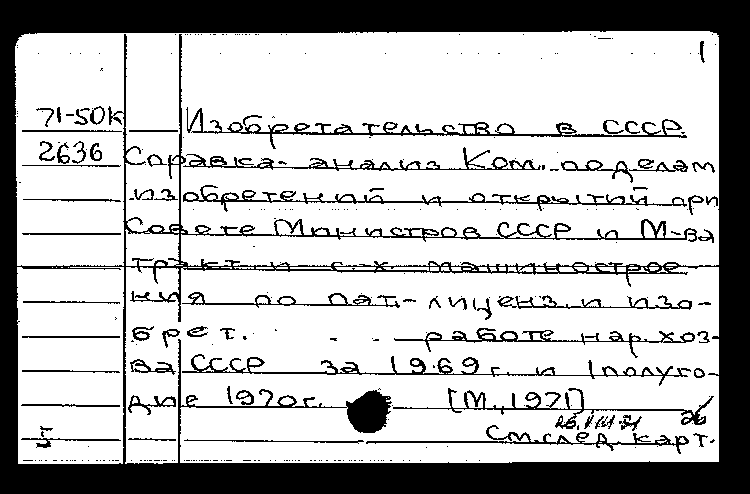 1
71-50к Изобретательство в СССР
2636 Справка-анализ Ком. по делам
изобретений и открытий при
Совете Министров СССР и М-ва
тракт. и с.-х. машинострое-
ния по пат.-лиценз. и изо-
брет. работе нар. хоз-
ва СССР за 1969 г. и 1 полуго-
дие 1970 г. [М., 1971]
26
См. след. карт.